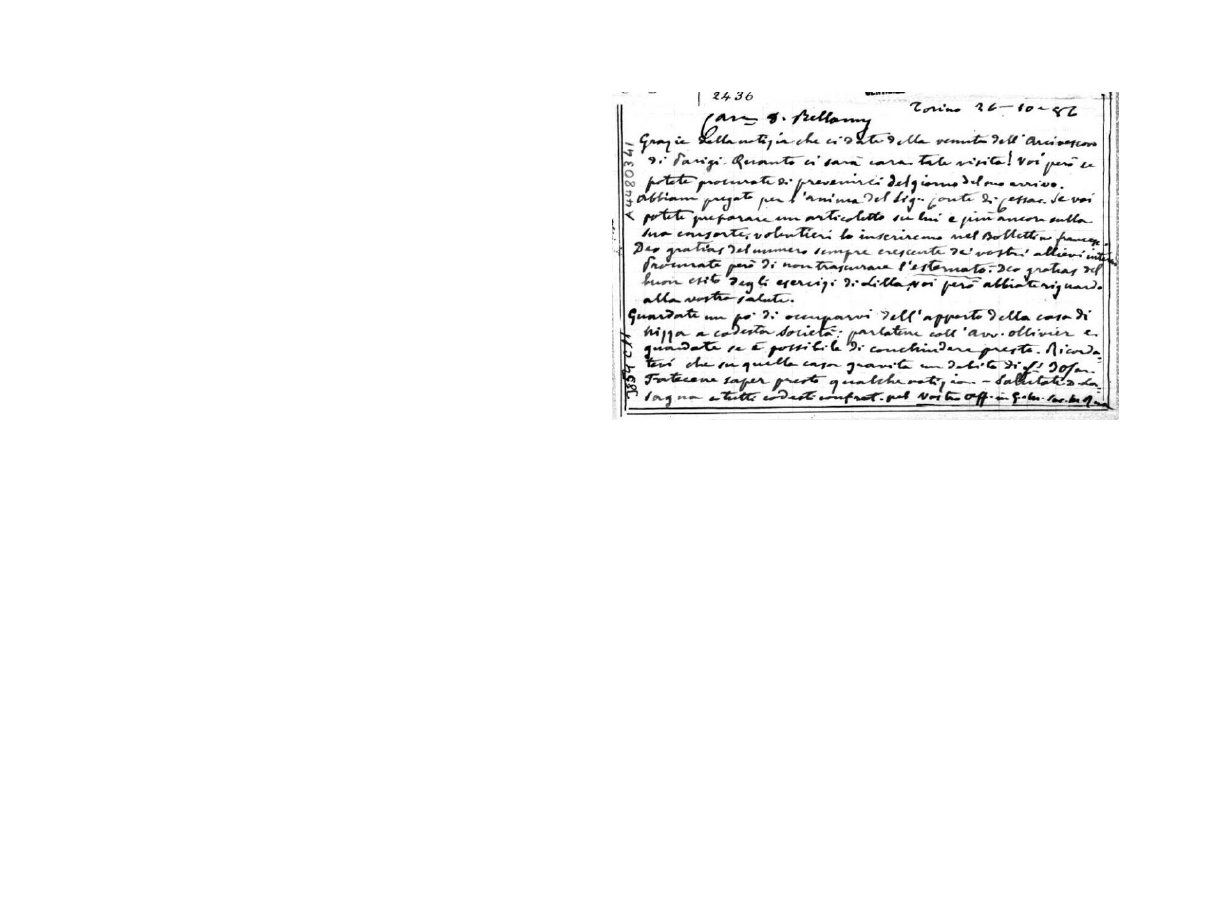 2436
Torino 26-10-86
Caro D. Bellamy
Grazie della notizia che ci date della venuta dell'Arcivescovo
di Parigi. Quanto ci sarà cara tale visita! Voi però se
potete procurate di prevenirci del giorno del suo arrivo.
Abbiam pregato per l'anima del Sig. Conte di Cessac. Se voi
potete preparare un articoletto su lui e più ancora sulla
sua consorte, volentieri lo inseriremo nel Bollettino francese.
Deo gratias del numero sempre crescente de' vostri allievi interni
Procurate però di non trascurare l'esternato. Deo gratias del
buon esito degli esercizi di Lilla, voi però abbiate riguardo
alla vostra salute.
Guardate un po' di occuparvi dell'apporto della casa di
Nizza a codesta Società; parlatene coll'Avv. Ollivier e
guardate se è possibile di conchiudere presto. Ricorda-
tevi che su quella casa gravita un debito di
Fatecene saper presto qualche notizia. - Salutate D. La-
sagna e tutti codesti confrat. pel Vostro aff. in G.
A4480341
3854 C11